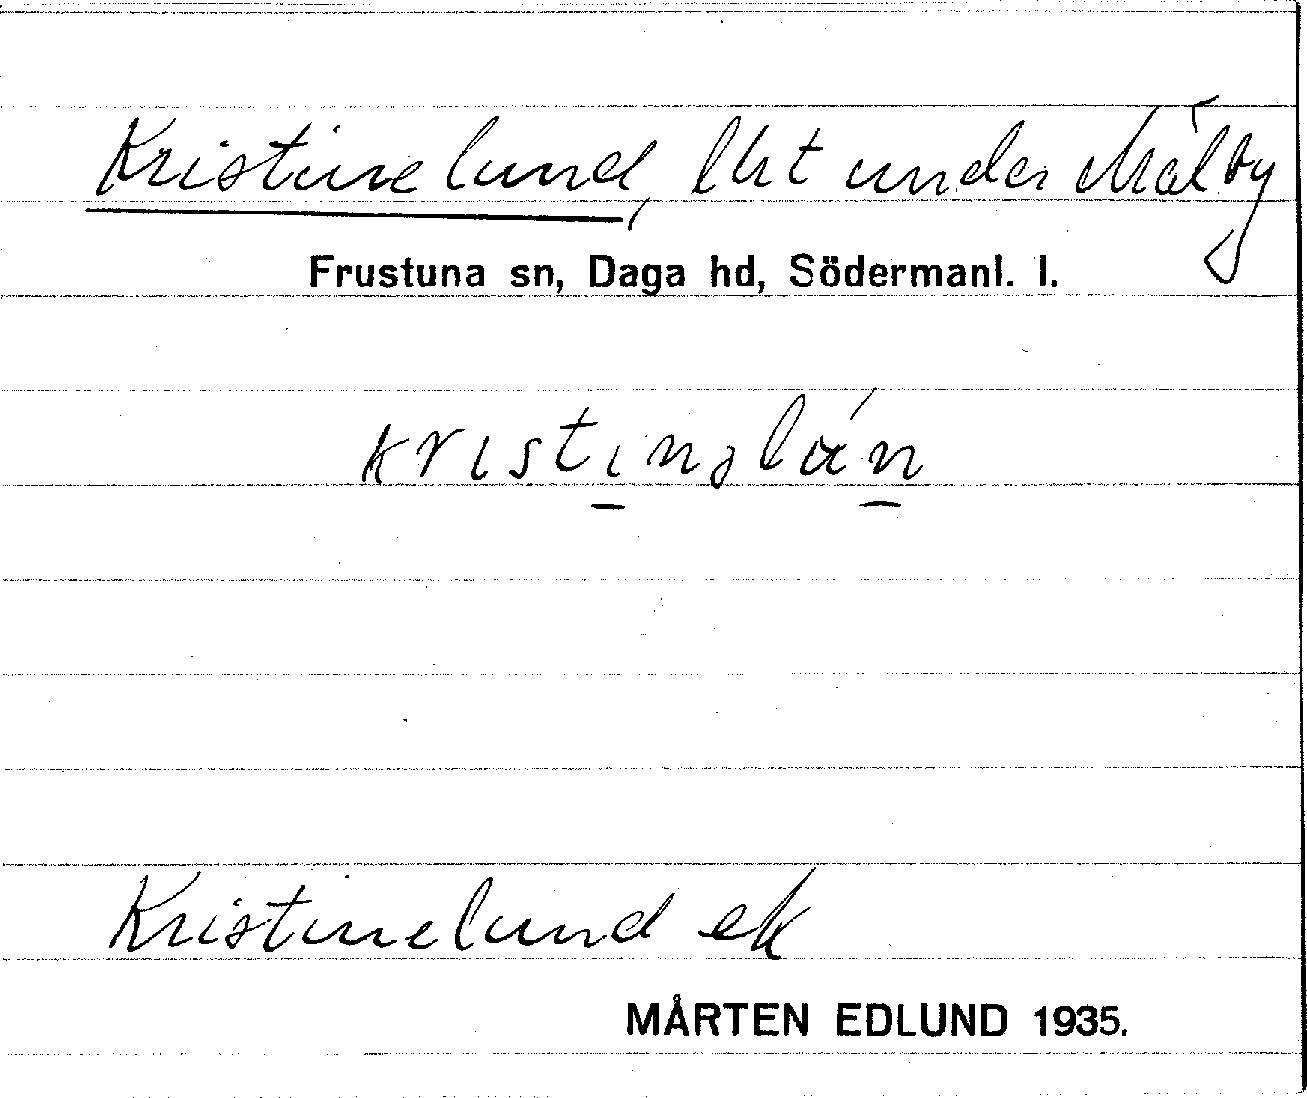 Kristinelund, lht under Mälby
Frustuna sn, Daga hd, Södermanl. l.
Kristinelund ek
MÅRTEN EDLUND 1935.